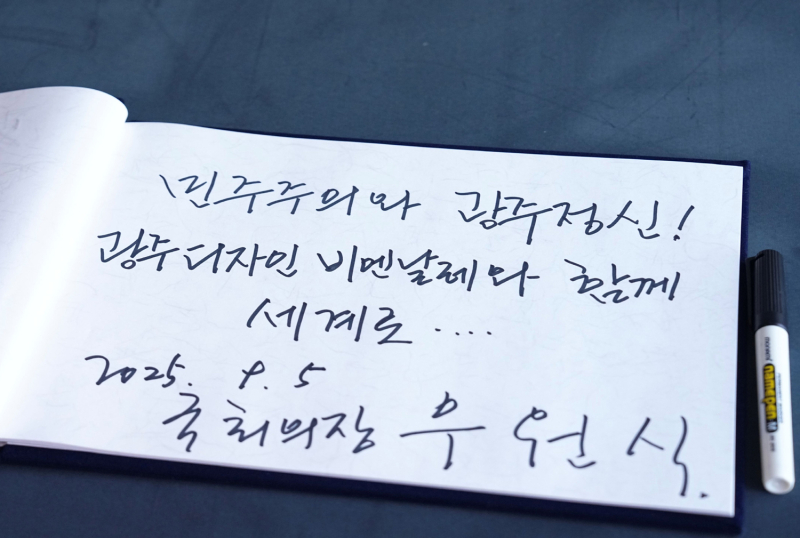 민주주의와 광주정신!
광주디자인 비엔날레와 함께
세계로 ....
2025. 9. 5
국회의장 우원식.
monami
namepen M